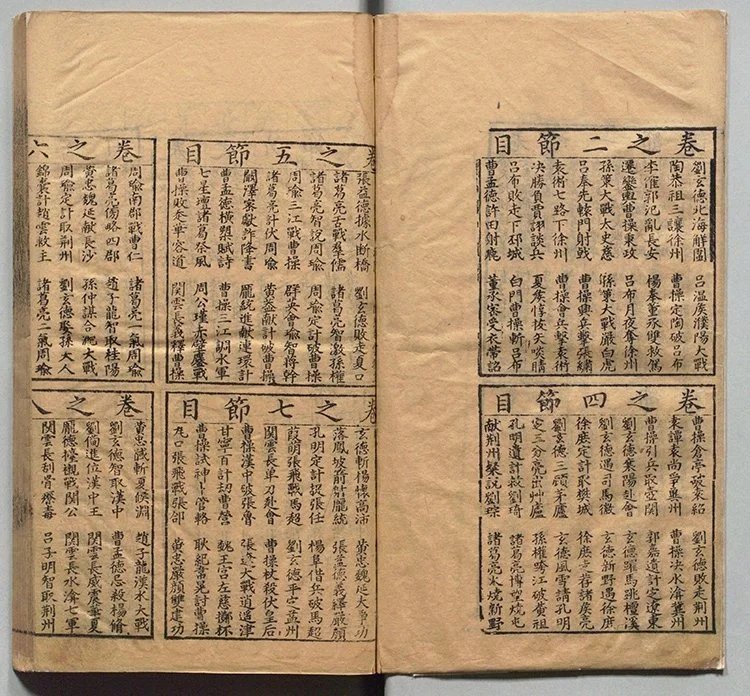 卷之二節目
劉玄德北海解圍 呂溫侯濮陽大戰
陶恭祖三讓徐州 曹操定陶破呂布
李傕郭汜亂長安 楊奉董承雙救駕
遷鑾輿曹操秉政 呂布月夜奪徐州
孫策大戰太史慈 孫策大戰嚴白虎
呂奉先轅門射戟 曹操興兵擊張繡
袁術七路下徐州 曹操會兵擊袁術
決勝負賈詡談兵 夏侯惇拔矢啖睛
呂布敗走下邳城 白門曹操斬呂布
曹孟德許田射鹿 董承密受衣帶詔
卷之四節目
曹操倉亭破袁紹 劉玄德敗走荊州
袁譚袁尚爭冀州 曹操決水淹冀州
曹操引兵取壺關 郭嘉遺計定遼東
劉玄德襄陽赴會 玄德躍馬跳檀溪
劉玄德遇司馬徽 玄德新野遇徐庶
徐庶定計取樊城 徐庶走荐諸葛亮
劉玄德三顧茅廬 玄德風雪請孔明
定三分亮出茅廬 孫權跨江破黃祖
孔明遺計救劉琦 諸葛亮博望燒屯
獻荊州粲說劉琮 諸葛亮火燒新野
卷之五節目
張益德據水斷橋 劉玄德敗走夏口
諸葛亮舌戰羣儒 諸葛亮智激孫權
諸葛亮智說周瑜 周瑜定計破曹操
周瑜三江戰曹操 群英會瑜智蔣幹
諸葛亮計伏周瑜 黃蓋獻計破曹操
闞澤密獻詐降書 龐統進獻連環計
曹孟德橫槊賦詩 曹操三江調水軍
七星壇諸葛祭風 周公瑾赤壁鏖戰
曹操敗走華容道 関雲長義釋曹操
卷之六
周瑜南郡戰曹仁 諸葛亮一氣周瑜
諸葛亮傍略四郡 趙子龍智取桂陽
黃忠魏延獻長沙 孫仲謀合淝大戰
周瑜定計取荊州 劉玄德娶孫夫人
錦囊計趙雲救主 諸葛亮二氣周瑜
卷之七節目
玄德斬楊懷高沛 黃忠魏延大爭功
落鳳坡箭射龐統 張益德義釋嚴顏
孔明定計捉張任 楊阜借兵破馬超
葭萌張飛戰馬超 劉玄德平定益州
関雲長單刀赴會 曹操杖殺伏皇后
曹操漢中破張魯 張遼大戰逍遙津
甘寧百計劫曹營 魏王宮左慈擲杯
曹操試神卜管輅 耿紀韋晃討曹操
瓦口張飛戰張郃 黃忠嚴顏雙建功
卷之八
黃忠馘斬夏侯淵 趙子龍漢水大戰
劉玄德智取漢中 曹孟德忌殺楊脩
劉備進位漢中王 関雲長威震華夏
龐德擡櫬戰關公 関雲長水淹七軍
関雲長刮骨療毒 呂子明智取荊州